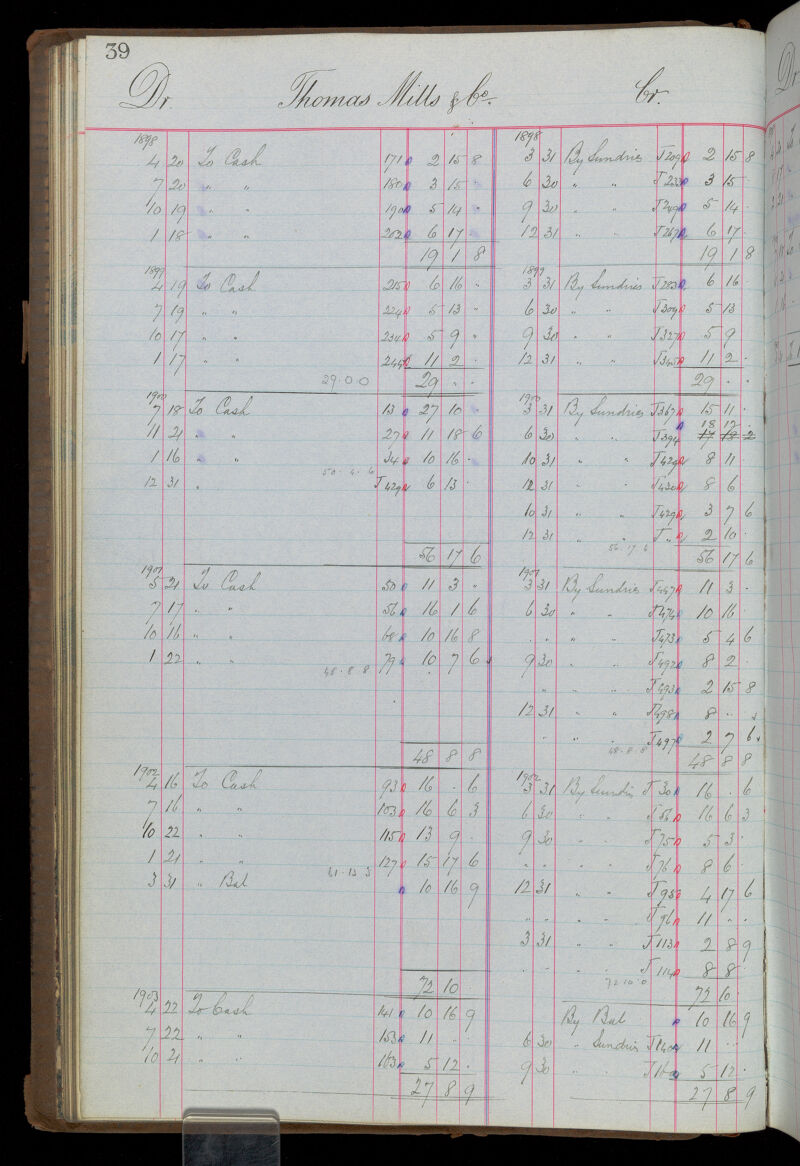 39
Dr. Thomas Mills & Co. Cr.
1898 1898
4 20 To Cash 171 2 15 8 3 31 By Sundries J209 2 15 8
7 20 " " 180 3 15 " 6 30 " " J233 3 15 .
10 19 " " 190 5 14 " 9 30 " " J249 5 14 .
1 18 " " 202 6 17 " 12 31 " " J267 6 17 .
19 1 8 19 1 8
1899 1899
4 19 To Cash 215 6 16 " 3 31 By Sundries J283 6 16 .
7 19 " " 224 5 13 " 6 30 " " J309 5 13
10 17 " " 234 5 9 " 9 30 " " J327 5 9
1 17 " " 244 11 2 . 12 31 " " J345 11 2 .
29.0.0 29 . . 29 . .
1900 1900
7 18 To Cash 13 27 10 . 3 31 By Sundries J367 15 11 .
18 12 .
11 21 " " 27 11 18 6 6 30 " " J394
1 16 " " 34 10 16 . 10 31 " " J429 8 11 .
50.4.6
12 31 " J429 6 13 . 12 31 " " J430 8 6
10 31 " " J429 3 7 6
12 31 " " J " 2 10 .
56.17.6
56 17 6 56 17 6
1901 1901
5 21 To Cash 50 11 3 " 3 31 By Sundries J447 11 3 .
7 17 " " 56 16 1 6 6 30 " " J474 10 16 .
10 16 " " 68 10 16 8 " " " " J473 5 4 6
1 22 " " 79 10 7 6 9 30 " " J492 8 2 .
48.8.8
" " " " J493 2 15 8
12 31 " " J498 8 . .
" " " " J497 2 7 6
48.8.8
48 8 8 48 8 8
1902 1902
4 16 To Cash 93 16 . 6 3 31 By Sundries J30 16 . 6
7 16 " " 103 16 6 3 6 30 " " J56 16 6 3
10 22 " " 115 13 9 . 9 30 " " J75 5 3 .
1 21 " " 127 15 17 6 " " " " J76 8 6 .
61.13.3
3 31 " Bal 10 16 9 12 31 " " J95 4 17 6
" " " " J96 11 " "
3 31 " " J113 2 8 9
" " " " J114 8 8 .
72.10.0
72 10 . 72 10 .
1903
4 22 To Cash 141 10 16 9 By Bal 10 16 9
7 22 " " 153 11 . . 6 30 " Sundries J140 11 . .
10 21 " " 163 5 12 . 9 30 " " 5 12 .
27 8 9 27 8 9